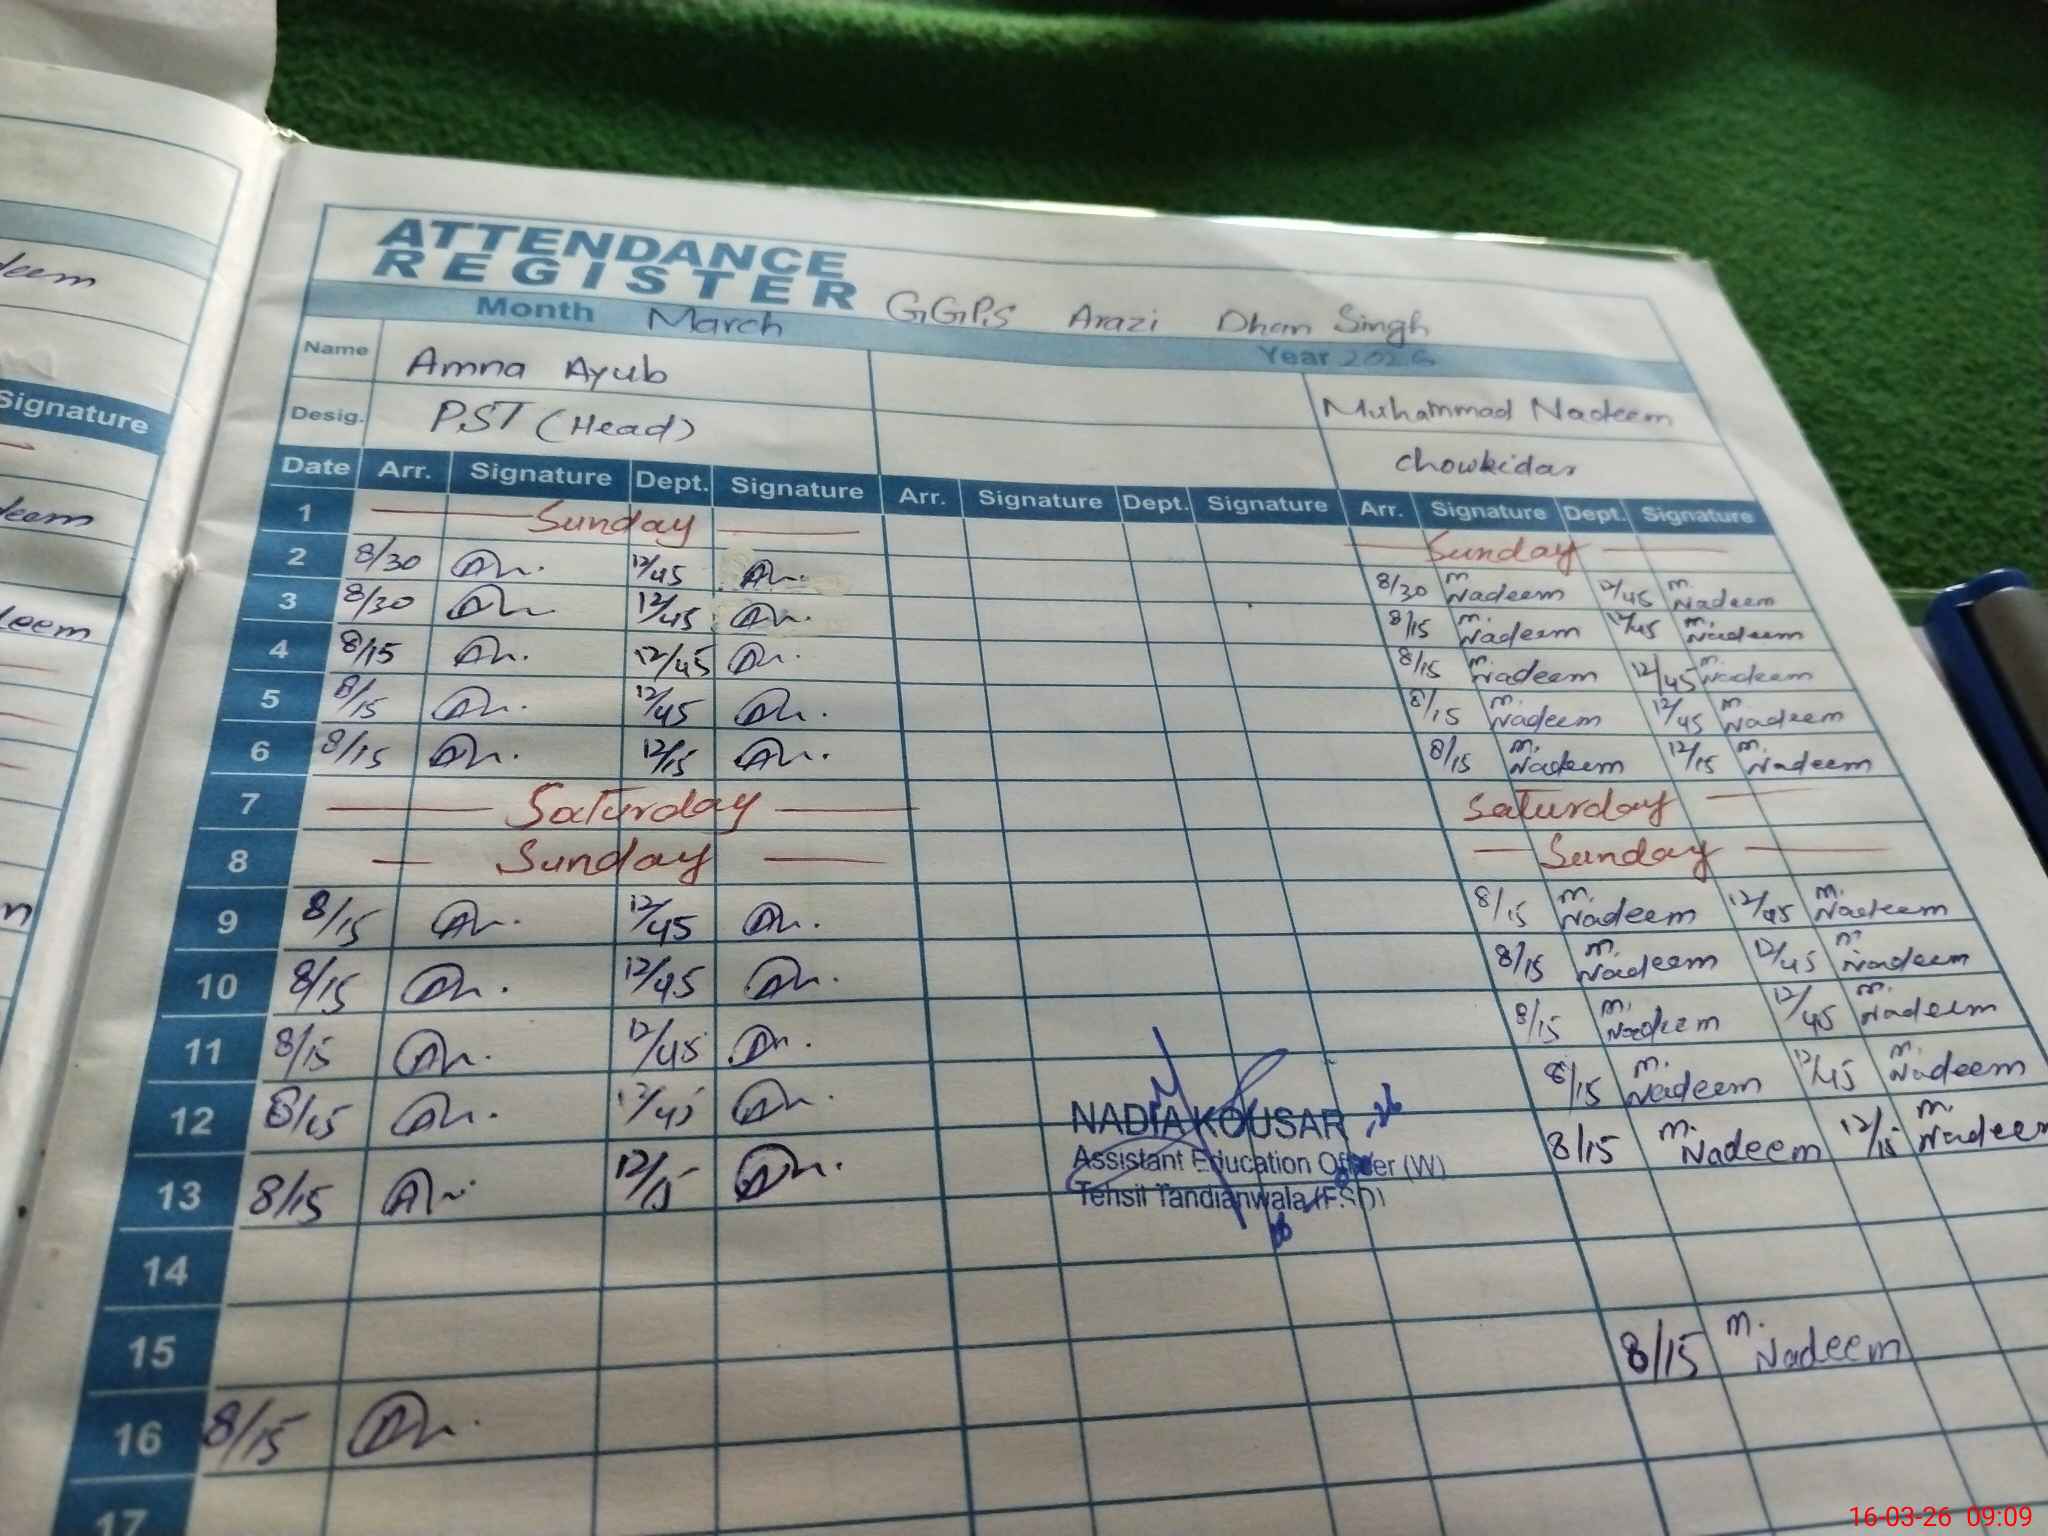 deem
Signature
deem
deem
m
ATTENDANCE
REGISTER
GGPS Arazi Dhan Singh
Month March Year 2026
Name Amna Ayub Muhammad Nadeem
Desig. PST (Head) chowkidar
Date Arr. Signature Dept. Signature Arr. Signature Dept. Signature Arr. Signature Dept. Signature
1 Sunday Sunday
2 8/30 12/45 8/30 M. Nadeem 12/45 M. Nadeem
3 8/30 12/45 8/15 M. Nadeem 12/45 M. Nadeem
4 8/15 12/45 8/15 M. Nadeem 12/45 M. Nadeem
5 8/15 12/45 8/15 M. Nadeem 12/45 M. Nadeem
6 8/15 12/15 8/15 M. Nadeem 12/15 M. Nadeem
7 Saturday Saturday
8 Sunday Sunday
9 8/15 12/45 8/15 M. Nadeem 12/45 M. Nadeem
10 8/15 12/45 8/15 M. Nadeem 12/45 M. Nadeem
11 8/15 12/45 8/15 M. Nadeem 12/45 M. Nadeem
12 8/15 12/45 8/15 M. Nadeem 12/45 M. Nadeem
13 8/15 12/15 8/15 M. Nadeem 12/15 M. Nadeem
NADIA KOUSAR
Assistant Education Officer (W)
Tehsil Tandianwala (FSD)
14
15
16 8/15 8/15 M. Nadeem
17
16-03-26 09:09